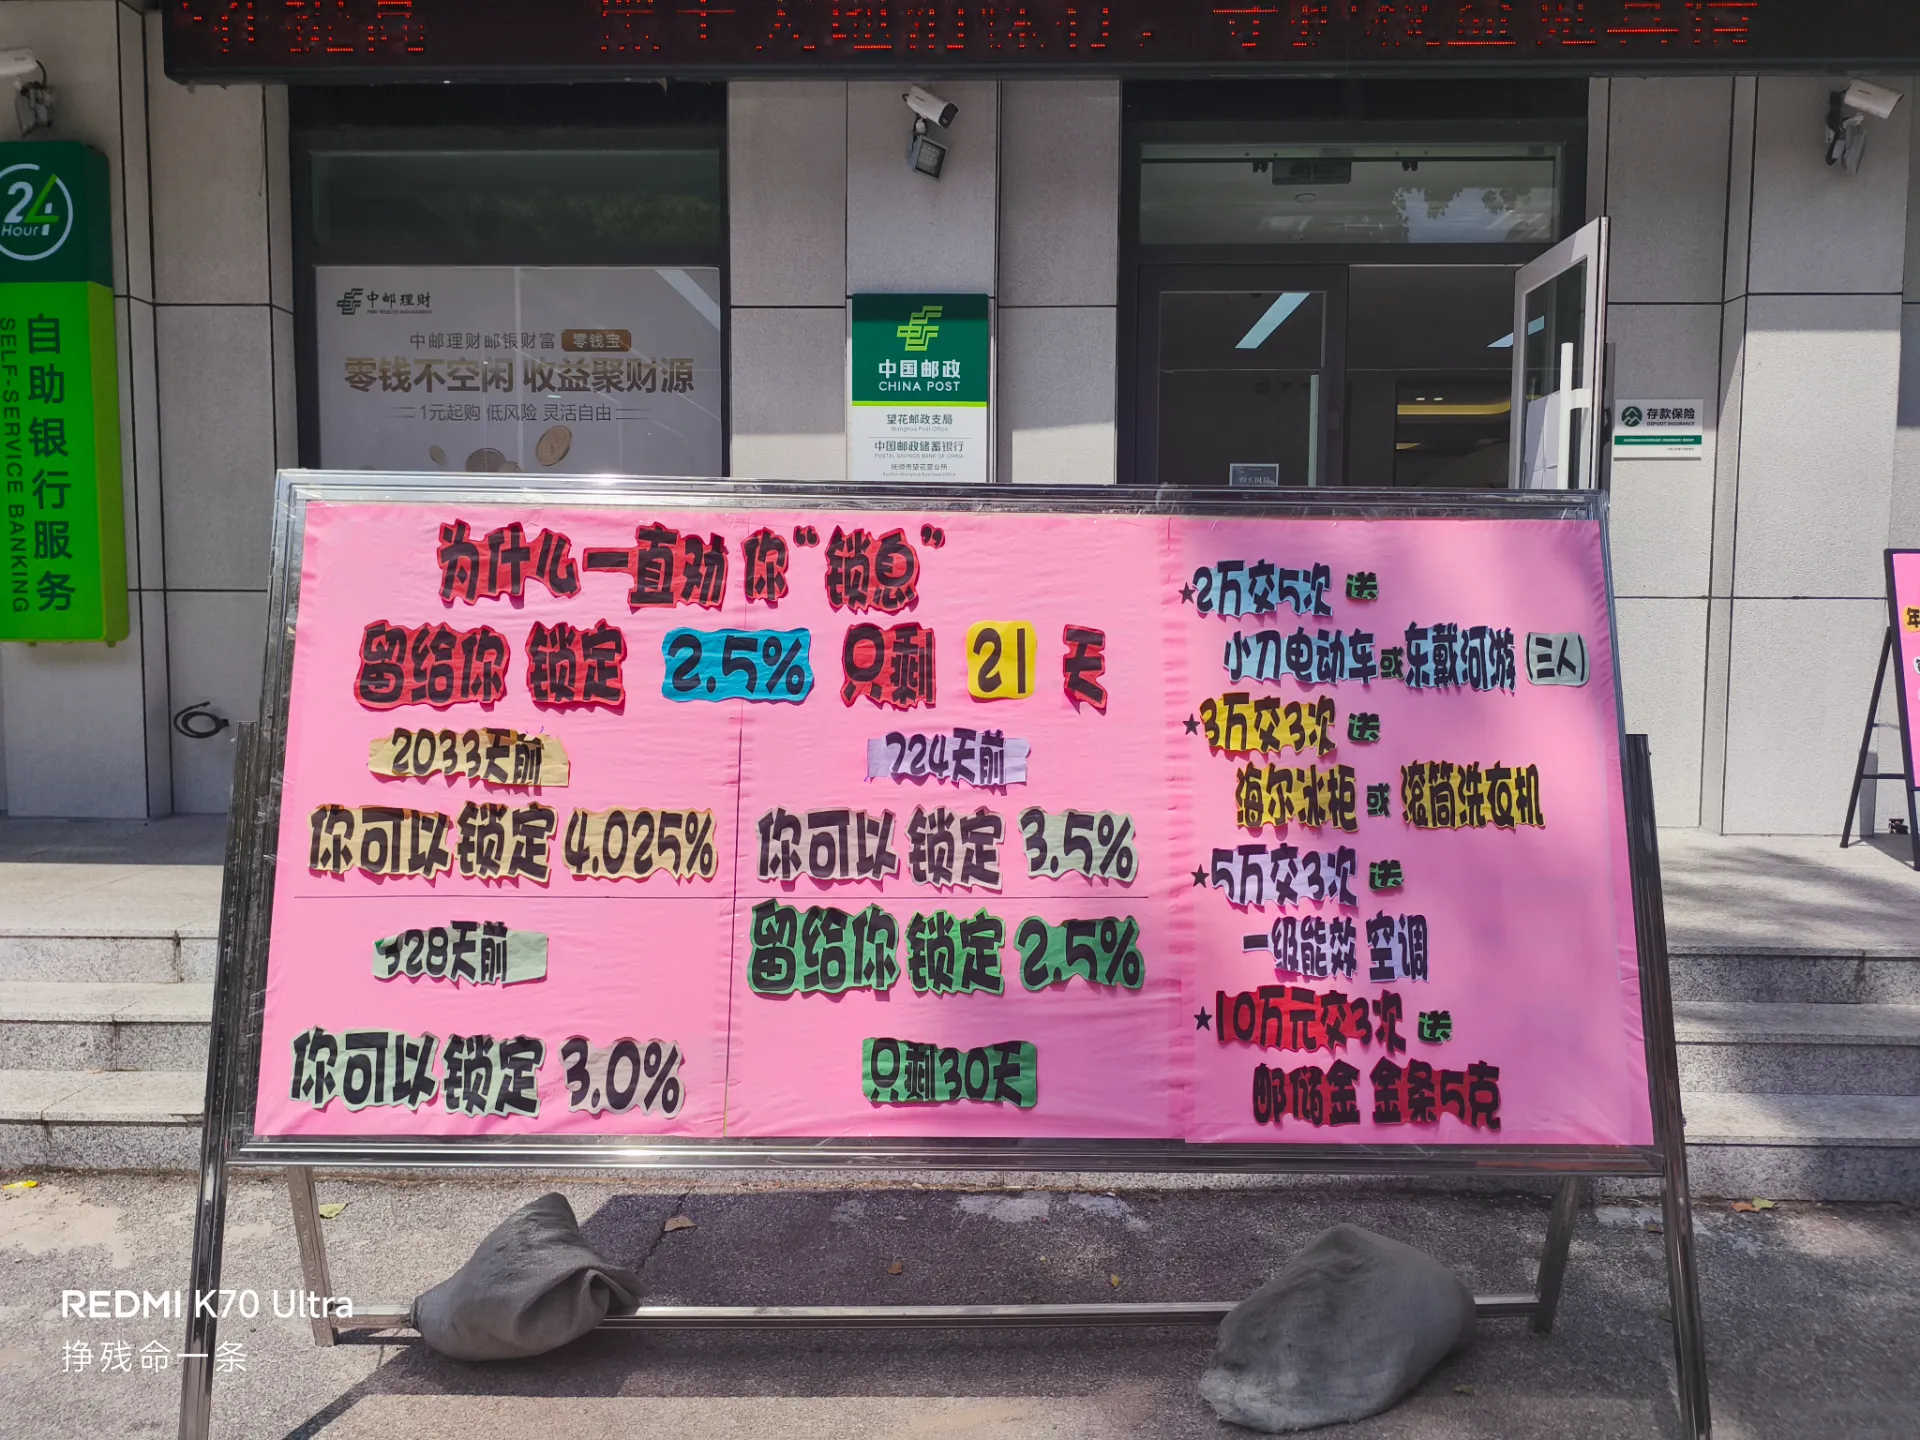 24
Hour
自助银行服务
SELF-SERVICE BANKING
中邮理财
中邮理财邮银财富 零钱宝
零钱不空闲 收益聚财源
1元起购 低风险 灵活自由
中国邮政
CHINA POST
望花邮政支局
Wanghua Post Office
中国邮政储蓄银行
POSTAL SAVINGS BANK OF CHINA
抚顺市望花营业所
存款保险
DEPOSIT INSURANCE
为什么一直劝你“锁息”
留给你 锁定 2.5% 只剩 21 天
2033天前
你可以锁定 4.025%
724天前
你可以锁定 3.5%
328天前
你可以锁定 3.0%
留给你 锁定 2.5%
只剩30天
★2万交5次 送
小刀电动车或东戴河游(三人)
★3万交3次 送
海尔冰柜 或 滚筒洗衣机
★5万交3次 送
一级能效 空调
★10万元交3次 送
邮储金 金条5克
年
REDMI K70 Ultra
挣残命一条